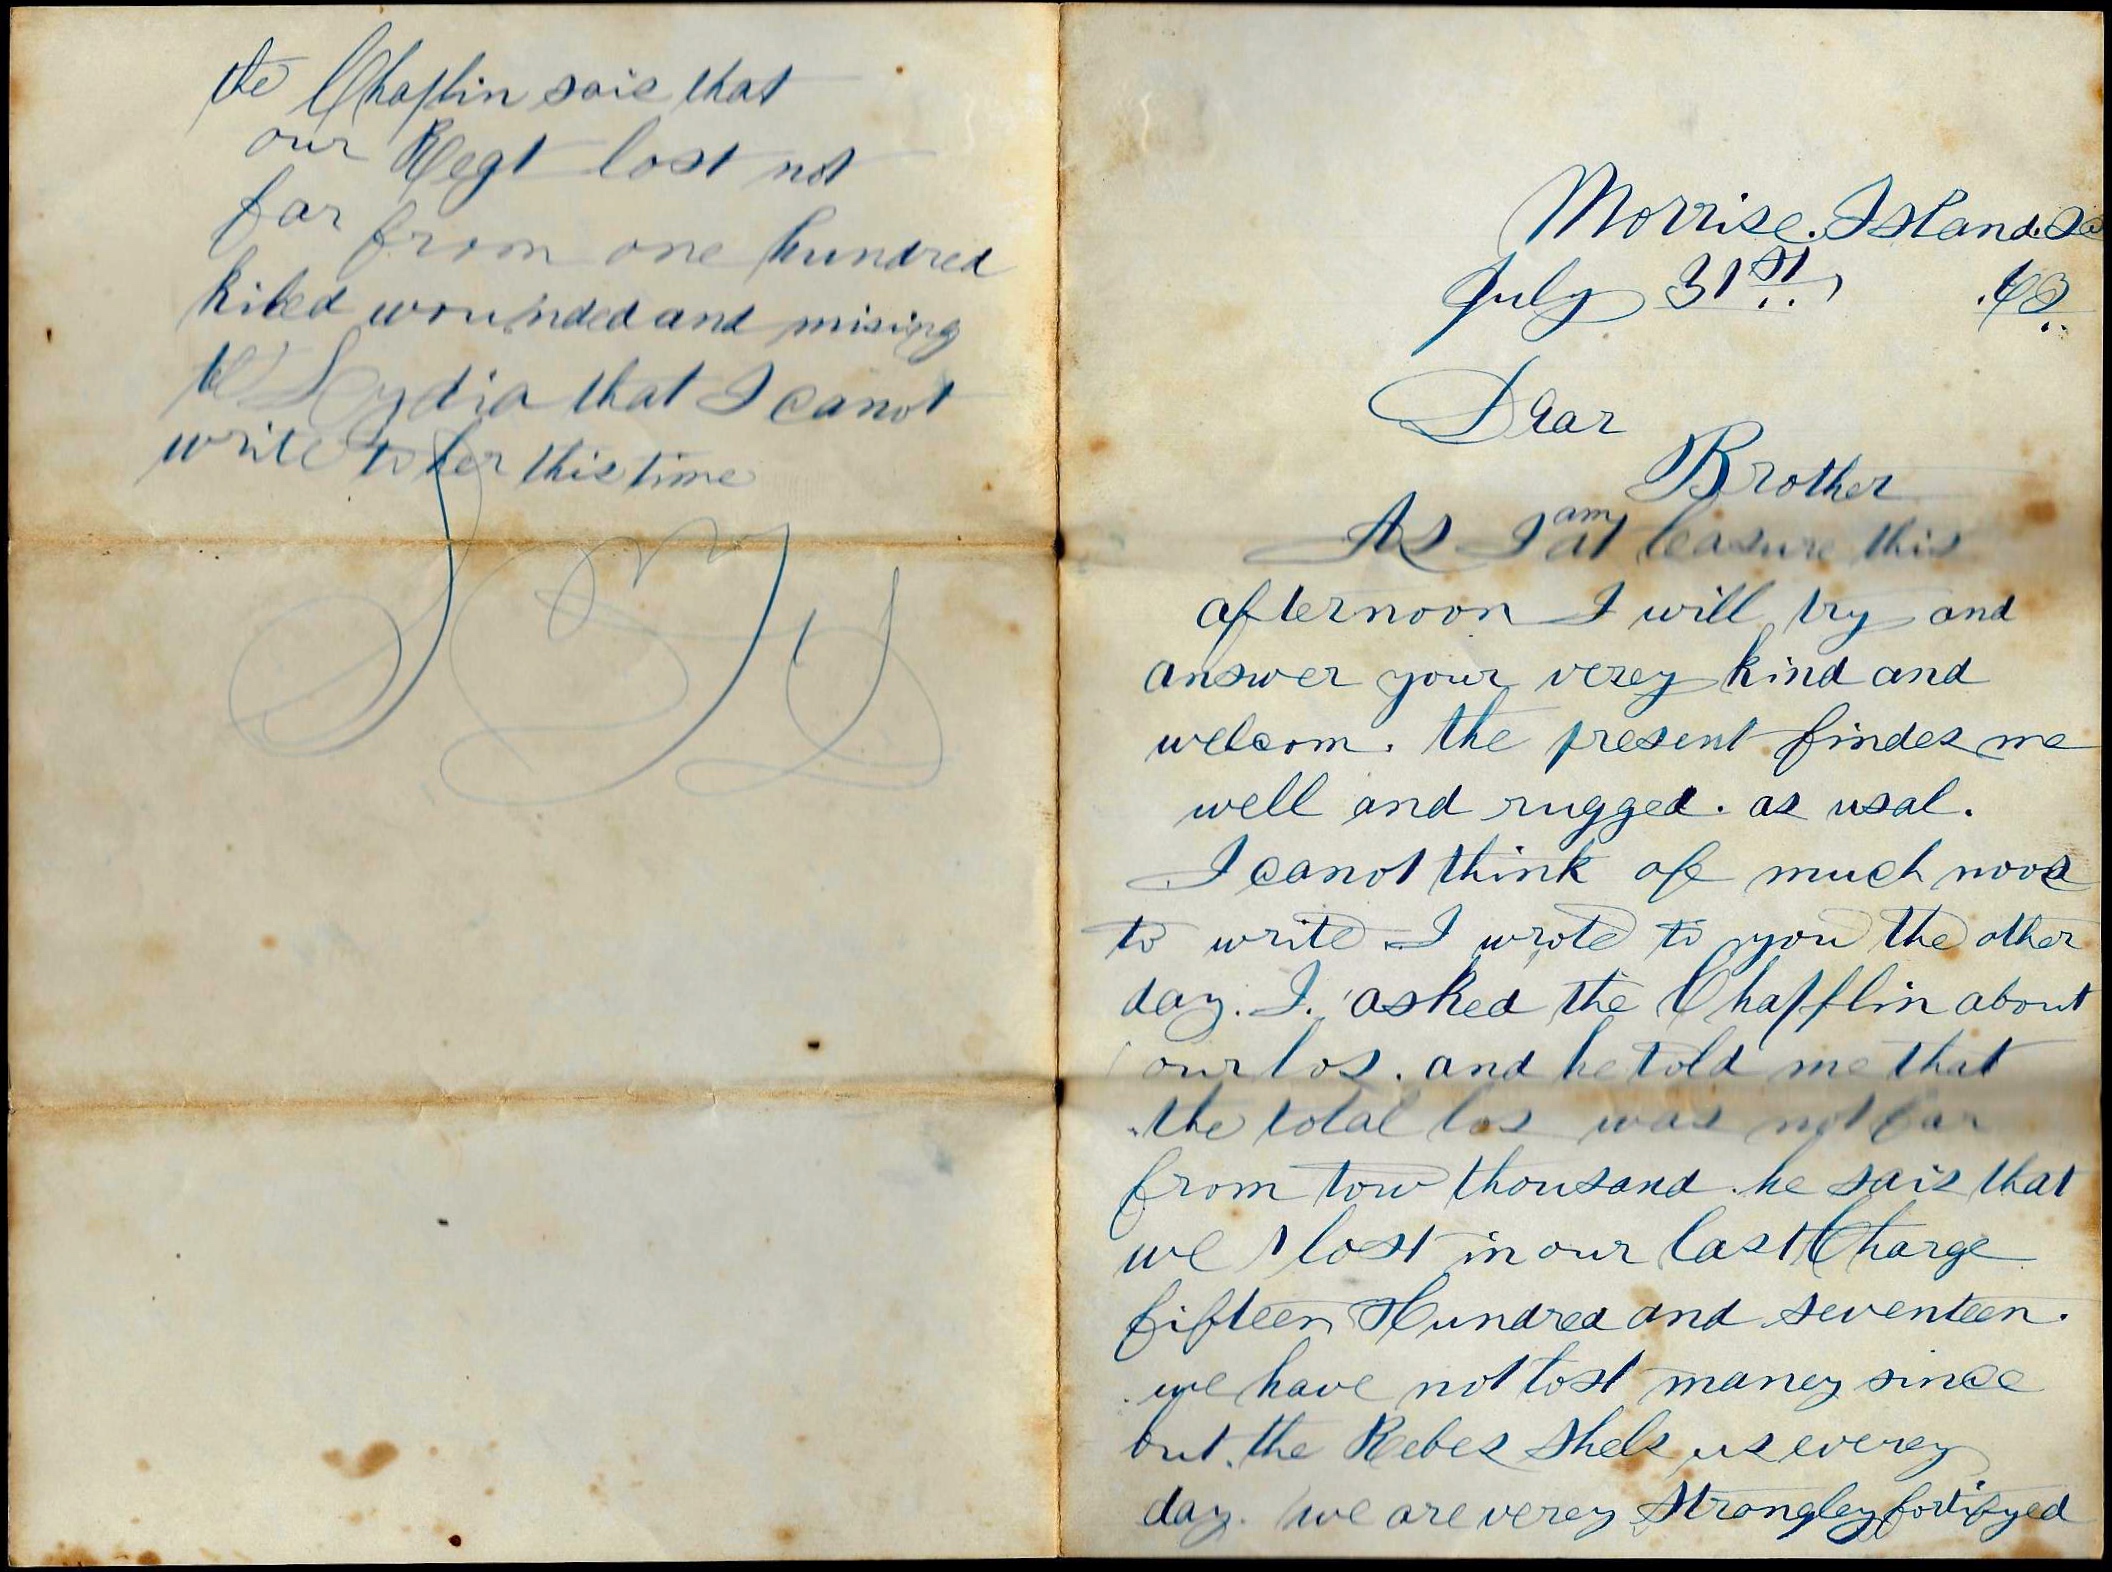 the Chaplin sais that
our Regt lost not
far from one hundred
kiled wounded and mising
tel Lydia that I canot
write to her this time
Morrise. Island. SC
July 31st, .63
Dear
Brother
As I am at leasure this
afternoon I will try and
answer your verey kind and
welcom. the present findes me
well and rugged. as usal.
I canot think of much noos
to write I wrote to you the other
day. I. asked the Chafflin about
our los. and he told me that
the total los was not far
from tow thousand. he sais that
we lost in our last Charge
fifteen Hundred and seventeen.
we have not lost maney since
but. the Rebes shels us everey
day. we are verey Strongley fortifyed